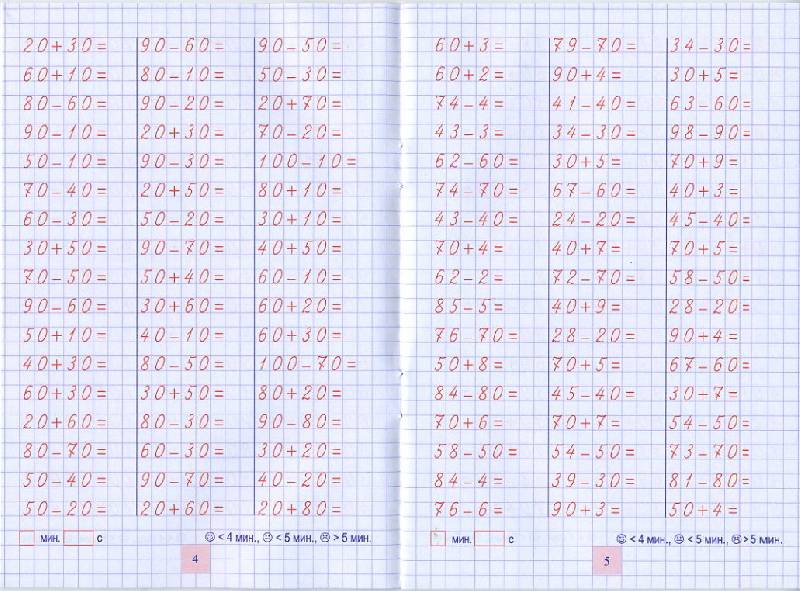 20+30= 90-60= 90-50=
60+10= 80-10= 50-30=
80-60= 90-20= 20+70=
90-10= 20+30= 70-20=
50-10= 90-30= 100-10=
70-40= 20+50= 80+10=
60-30= 50-20= 30+10=
30+50= 90-70= 40+50=
70-50= 50+40= 60-10=
90-60= 30+60= 60+20=
50+10= 40-10= 60+30=
40+30= 80-50= 100-70=
60+30= 30+50= 80+20=
20+60= 80-30= 90-80=
80-70= 60-30= 30+20=
50-40= 90-70= 40-20=
50-20= 20+60= 20+80=
мин. с < 4 мин., < 5 мин., > 5 мин.
4
60+3= 79-70= 34-30=
60+2= 90+4= 30+5=
74-4= 41-40= 63-60=
43-3= 34-30= 98-90=
62-60= 30+5= 70+9=
74-70= 67-60= 40+3=
43-40= 24-20= 45-40=
70+4= 40+7= 70+5=
62-2= 72-70= 58-50=
85-5= 40+9= 28-20=
76-70= 28-20= 90+4=
50+8= 70+5= 67-60=
84-80= 45-40= 30+7=
70+6= 70+7= 54-50=
58-50= 54-50= 73-70=
84-4= 39-30= 81-80=
76-6= 90+3= 50+4=
мин. с < 4 мин., < 5 мин., > 5 мин.
5